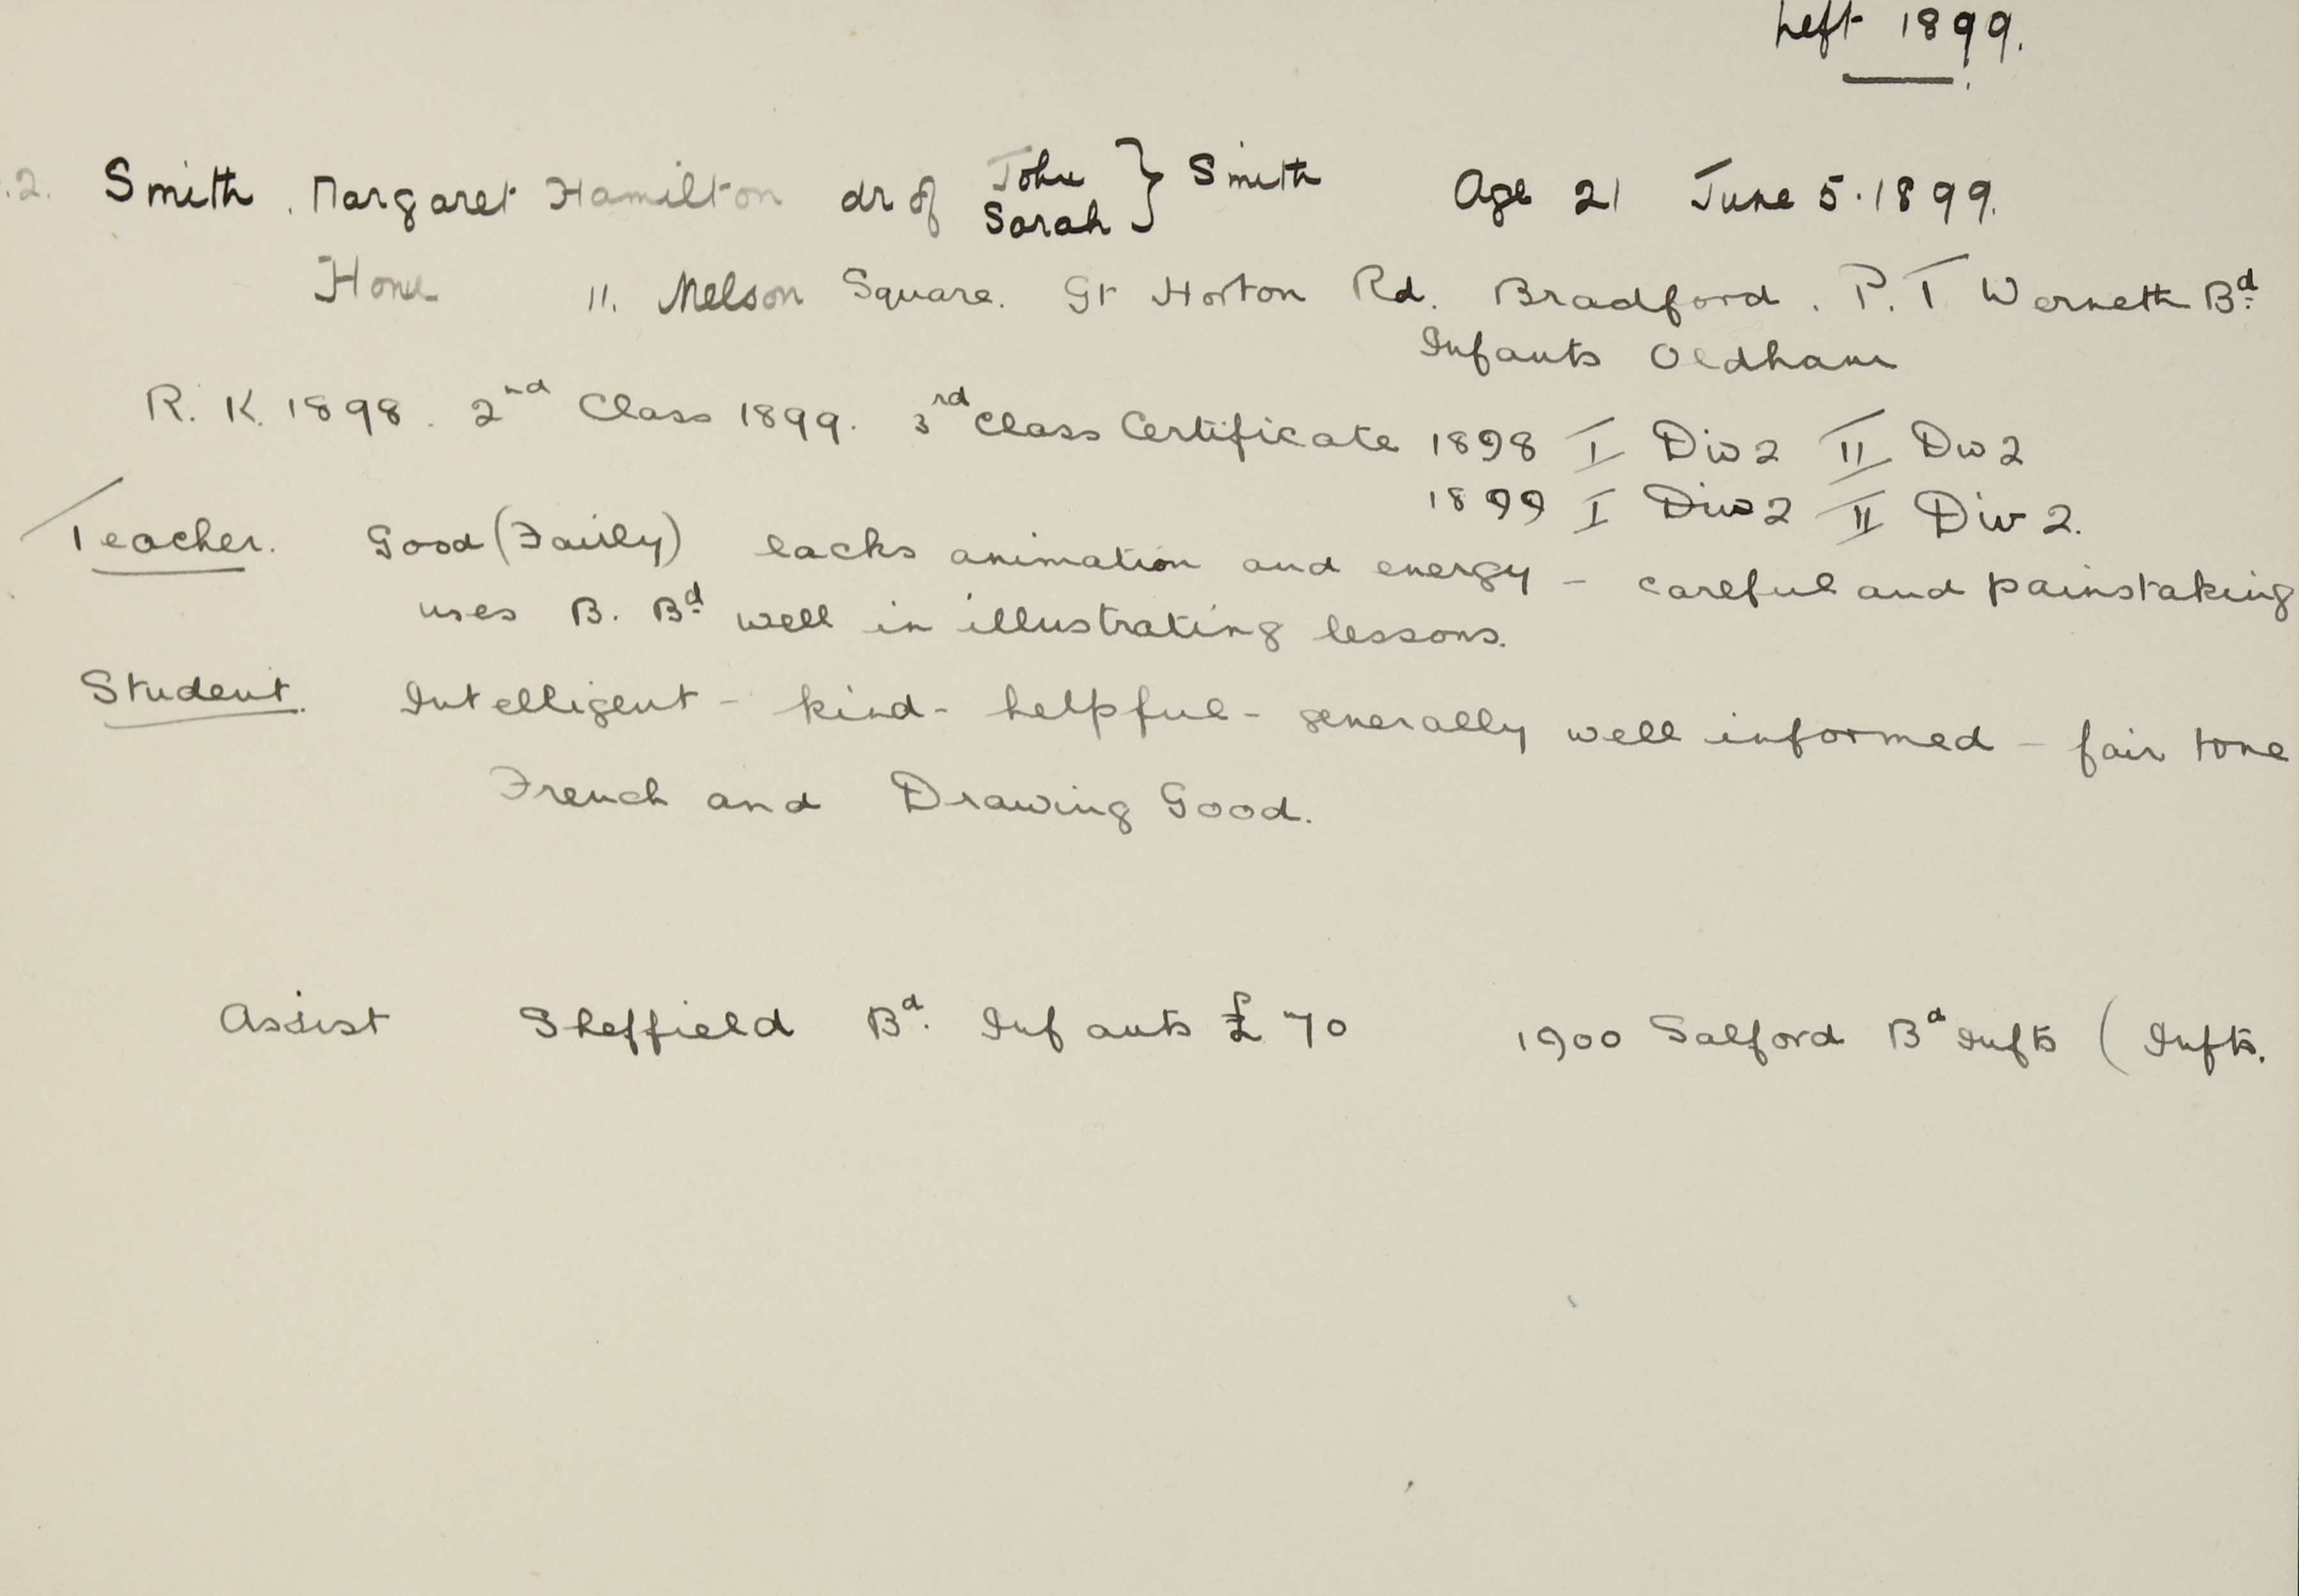 Left 1899.
2. Smith. Margaret Hamilton dr of John } Smith Age 21 June 5. 1899.
Sarah
Home 11. Melson Square. Gt Horton Rd. Bradford. P.T Werneth Bd.
Infants Oldham
R. K. 1898. 2nd Class 1899. 3rd Class Certificate 1898 I Div 2 II Div 2
1899 I Div 2 II Div 2.
Teacher. Good (Fairly) lacks animation and energy - careful and painstaking
uses B. Bd. well in illustrating lessons.
Student. Intelligent - kind - helpful - generally well informed - fair tone
French and Drawing Good.
Assist Sheffield Bd. Infants £70 1900 Salford Bd Infts (Infts.